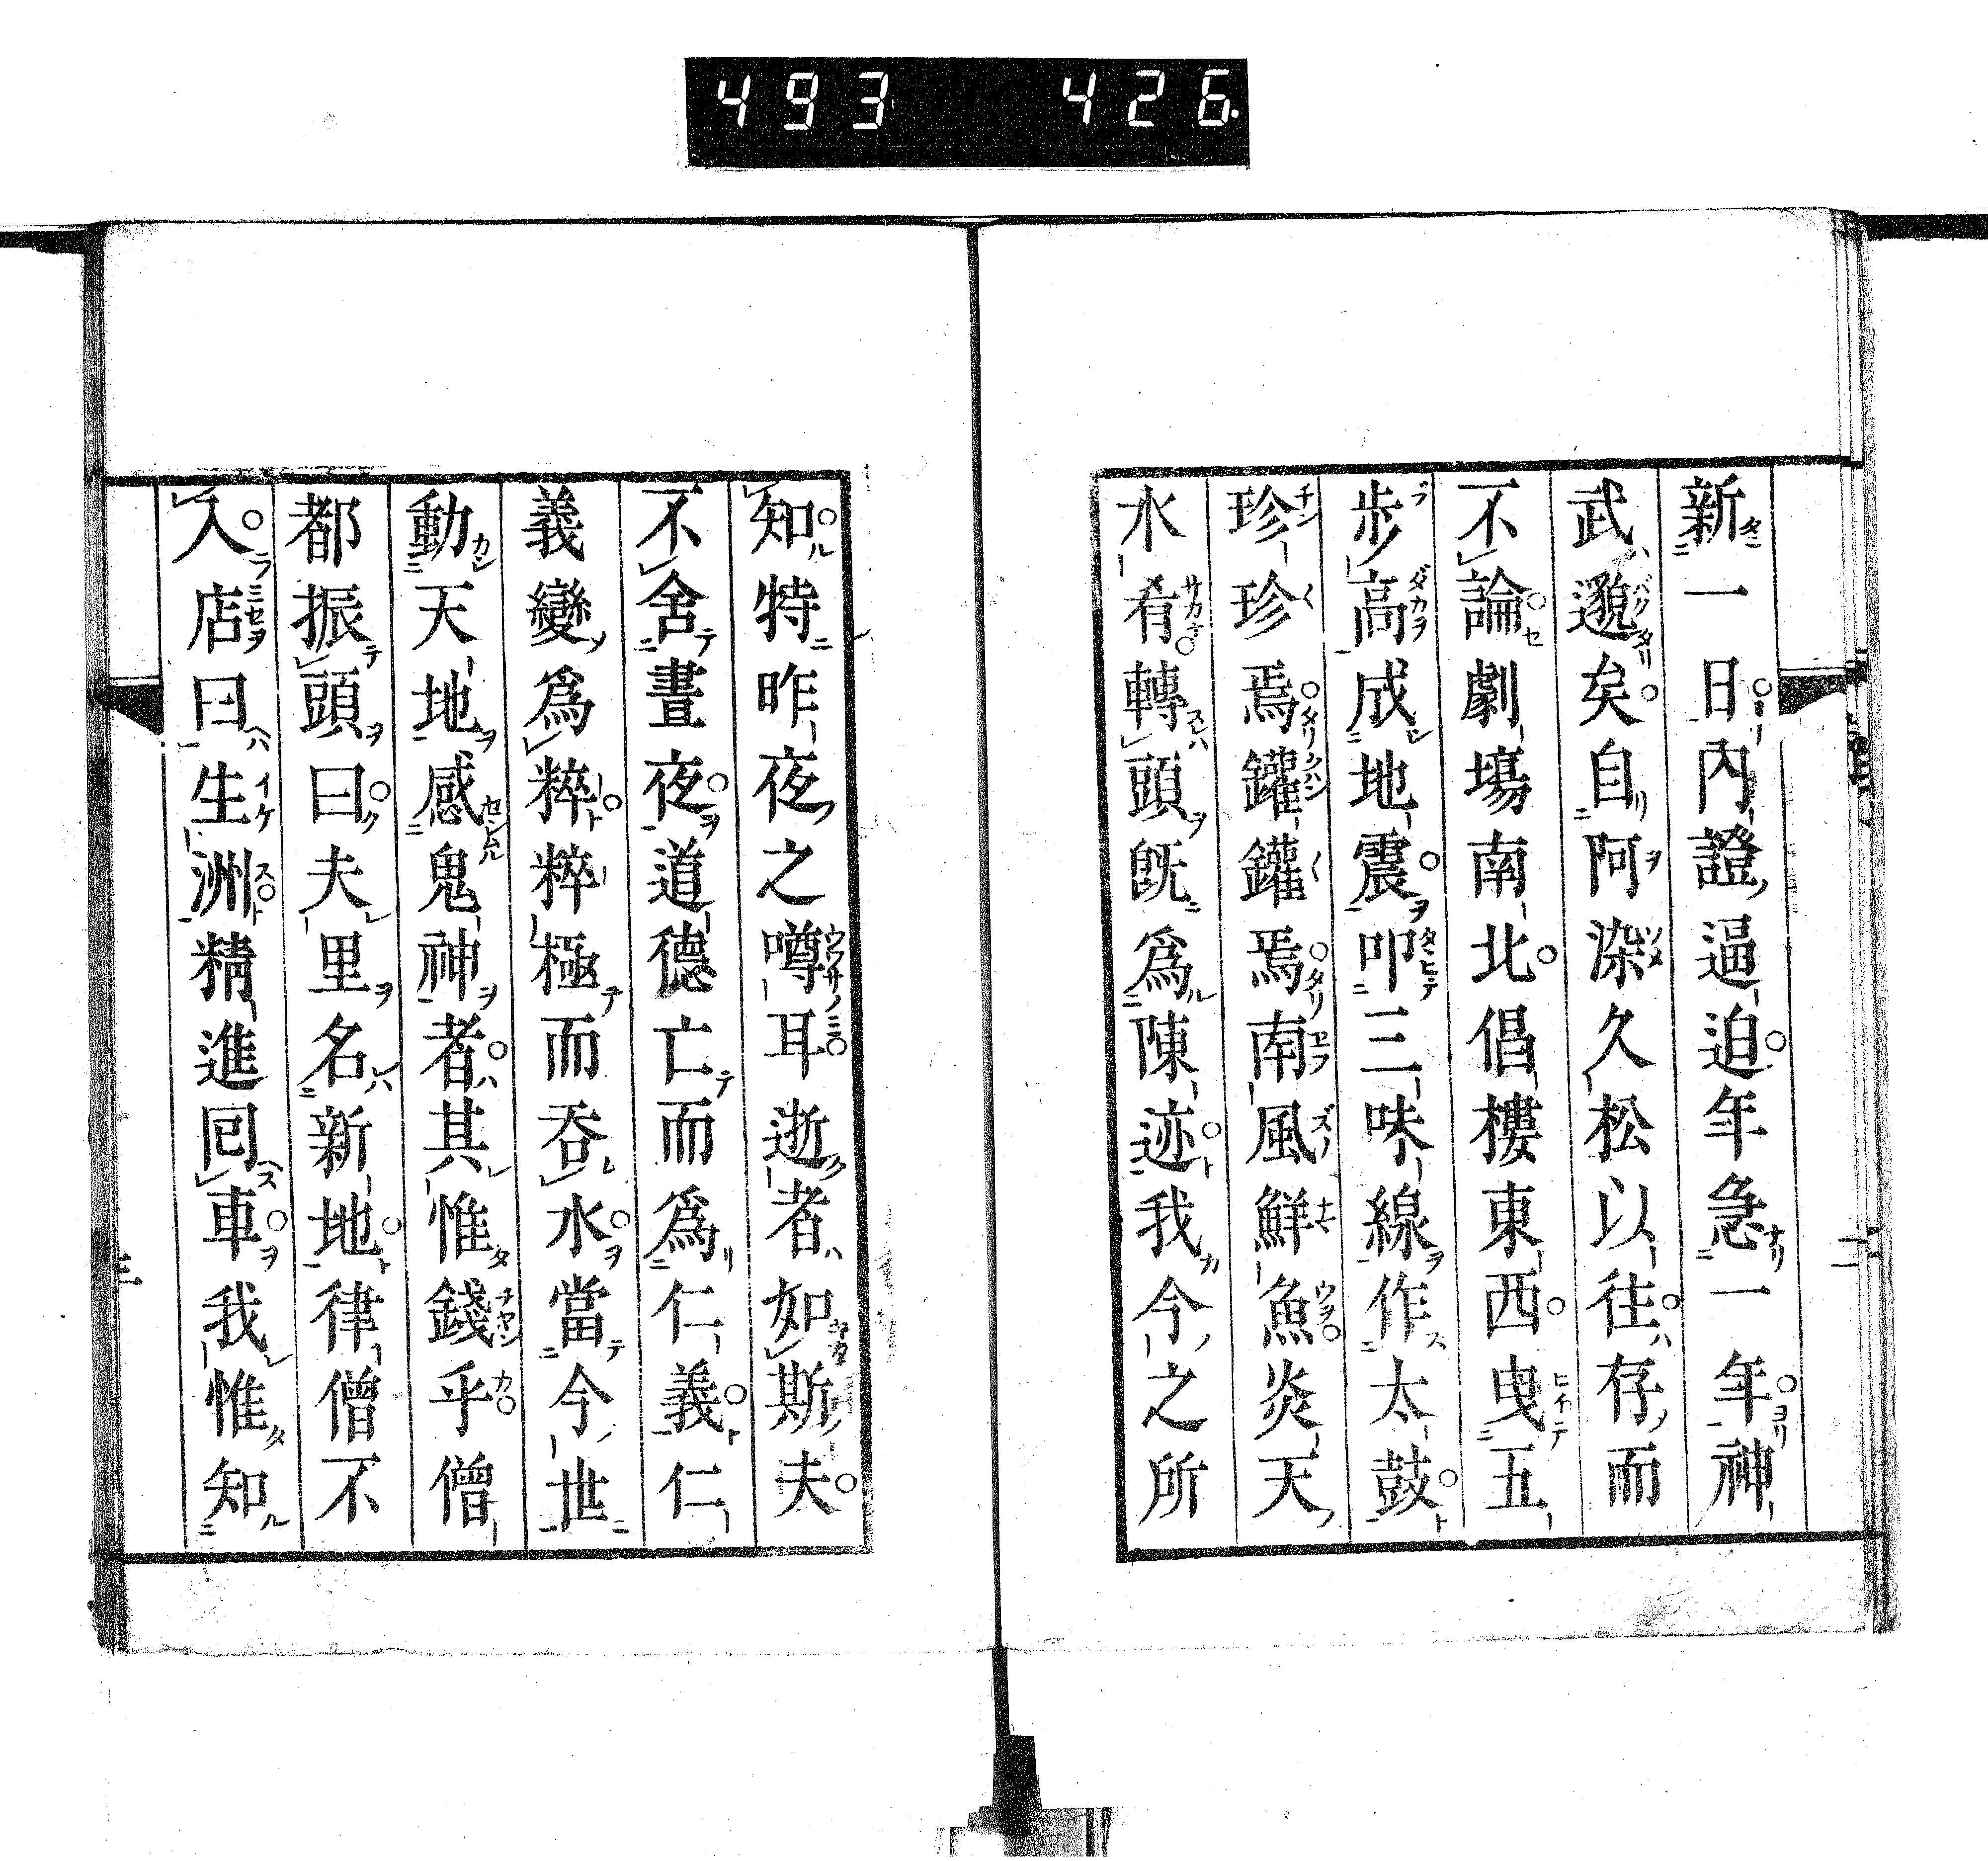 493 426
新一日內證逼迫年急一年神
武邈矣自阿染久松以往存而
不論劇場南北倡樓東西曳五
步高成地震叩三味線作太鼓
珍珍焉鑵鑵焉南風鮮魚炎天
水肴轉頭既爲陳迹我今之所
二
知特昨夜之噂耳逝者如斯夫
不舍晝夜道德亡而爲仁義仁
義變爲粹粹極而吞水當今世
動天地感鬼神者其惟錢乎僧
都振頭曰夫里名新地律僧不
入店曰生洲精進回車我惟知
三